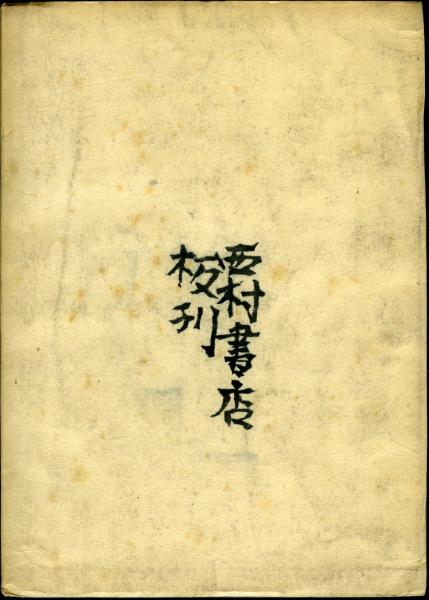 西村書店
板刊